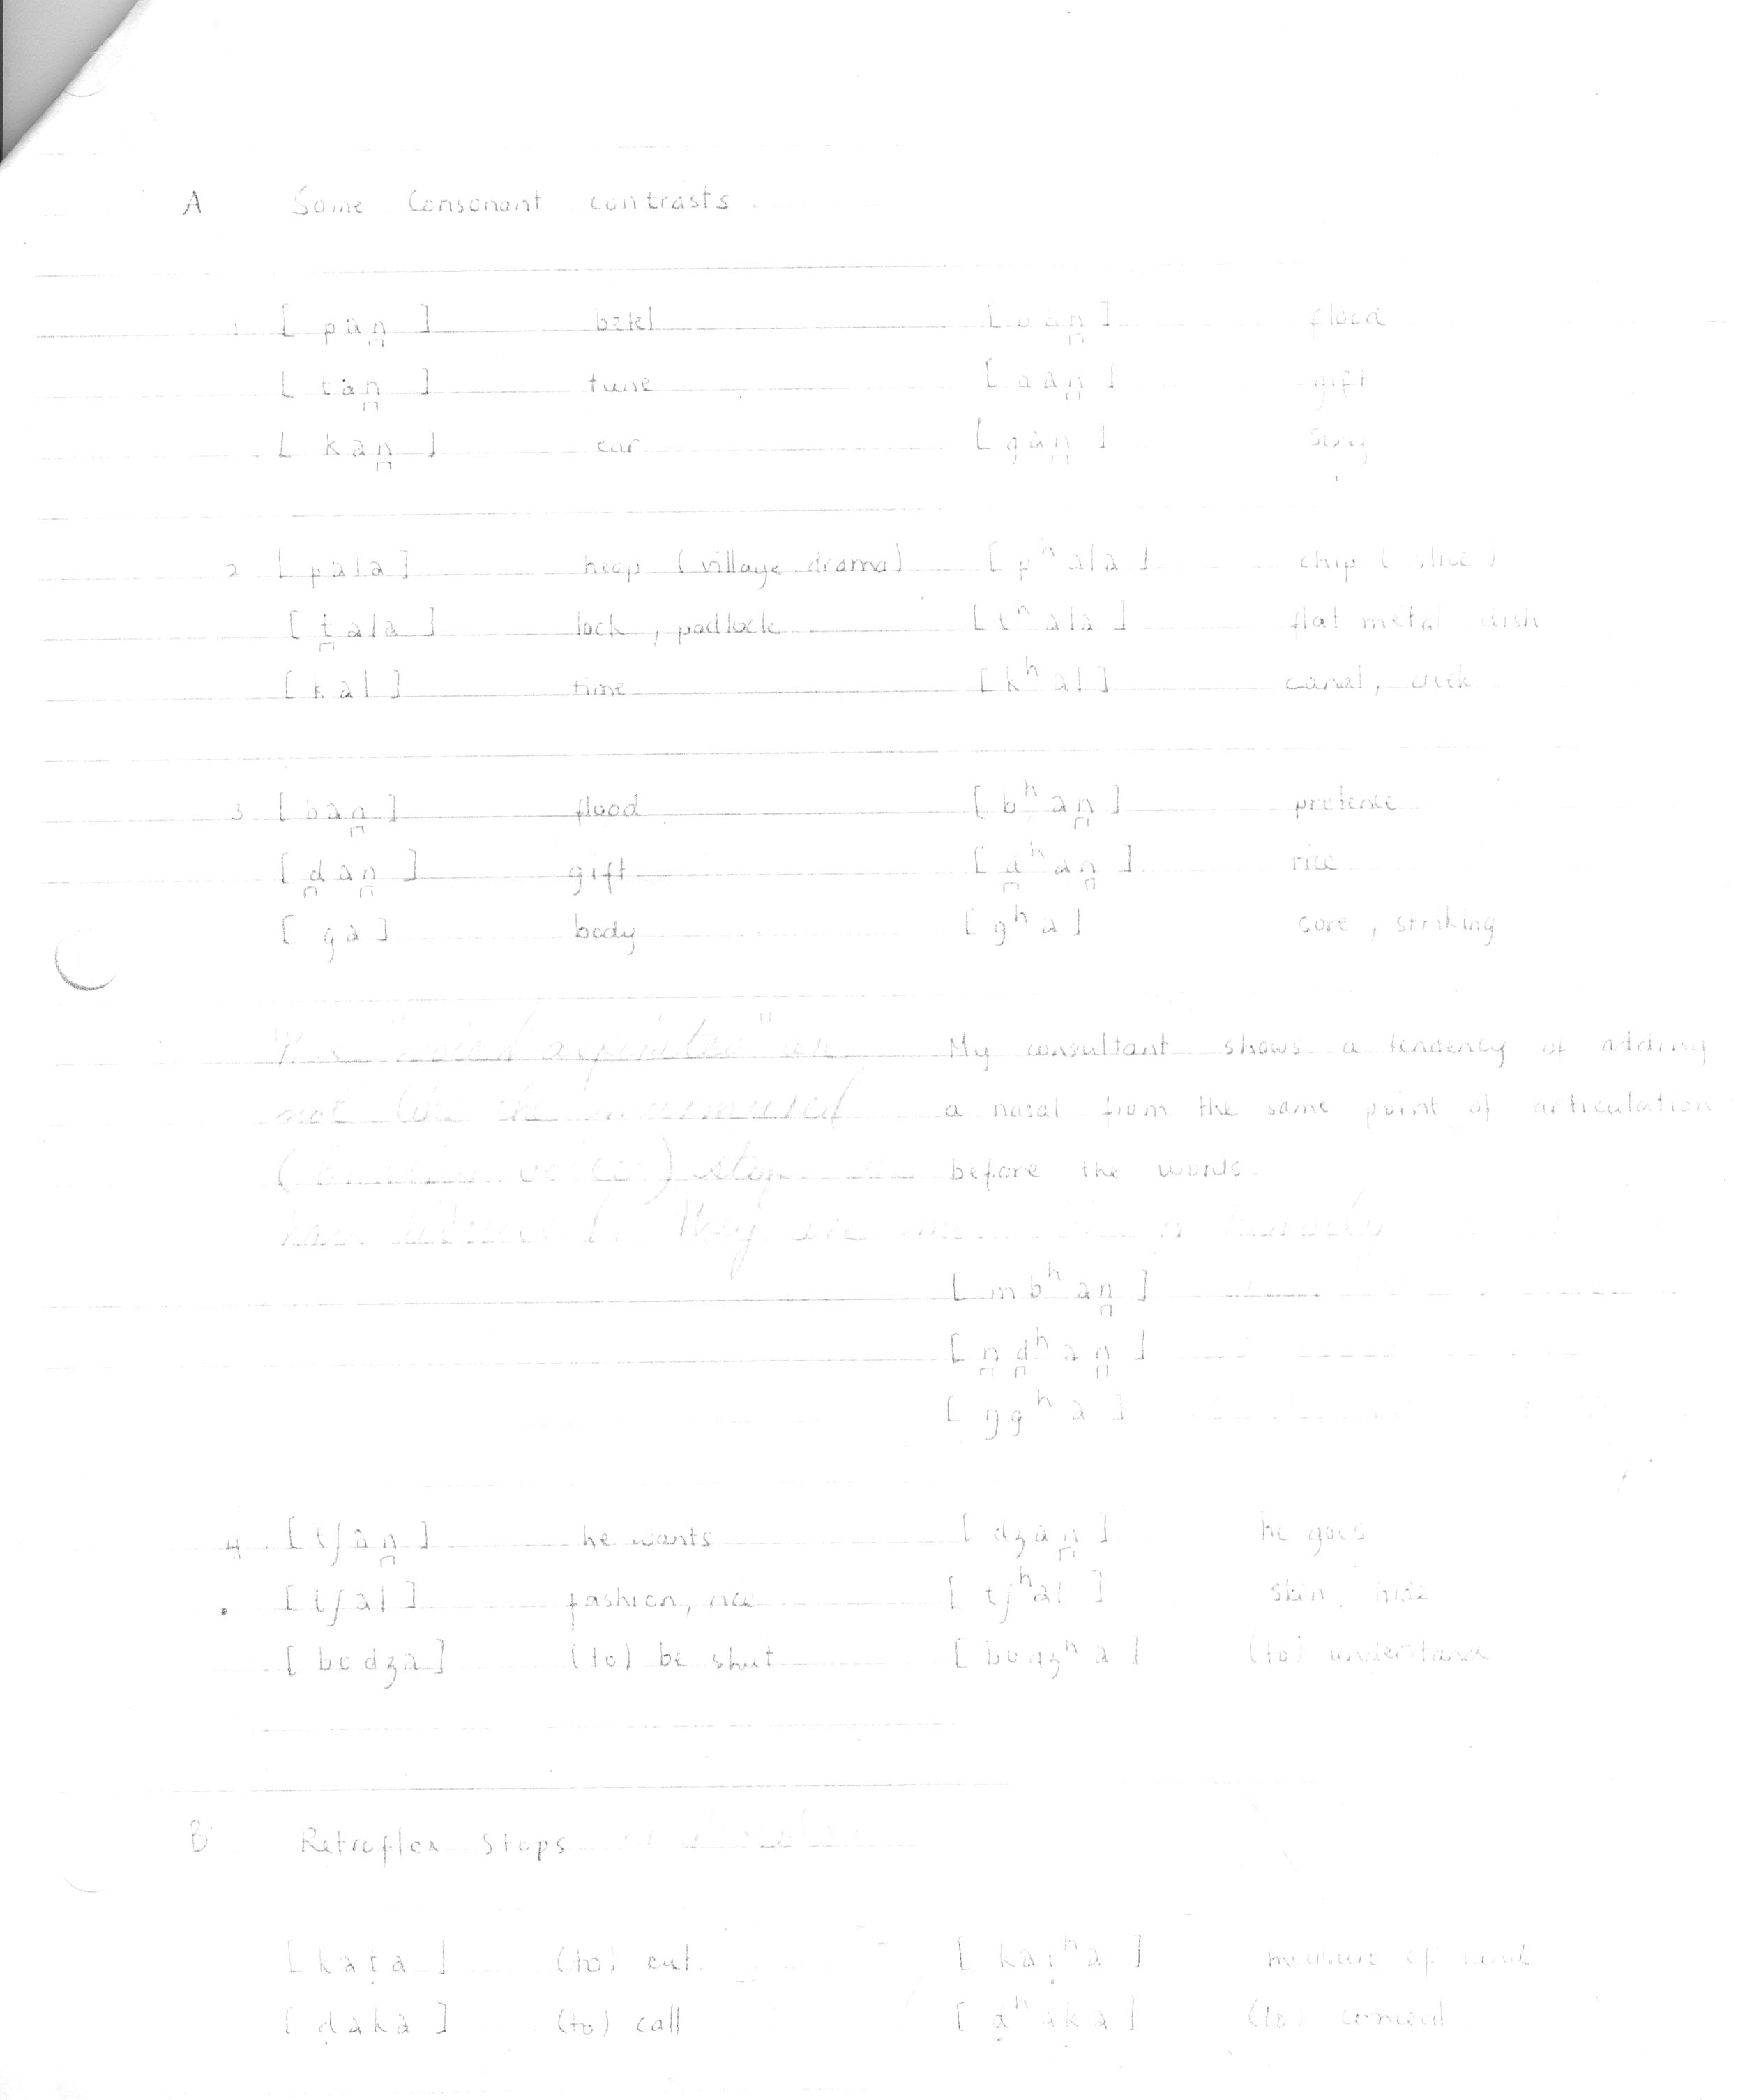 A Some Consonant contrasts.
1 [ pan̪ ] betel [ ban̪ ] flood
[ tan̪ ] tune [ dan̪ ] gift
[ kan̪ ] ear [ gan̪ ] song
2 [ pala ] heap (village drama) [ pʰala ] chip (slice)
[ t̪ala ] lock, padlock [ tʰala ] flat metal dish
[ kal ] time [ kʰal ] canal, creek
3 [ ban̪ ] flood [ bʰan̪ ] pretence
[ d̪an̪ ] gift [ d̪ʰan̪ ] rice
[ ga ] body [ gʰa ] sore, striking
"voiced aspirates" are My consultant shows a tendency of adding
not like the murmured a nasal from the same point of articulation
stops before the words.
They are
[ mbʰan̪ ]
[ n̪d̪ʰan̪ ]
[ ŋgʰa ]
4. [ tʃan̪ ] he wants [ dʒan̪ ] he goes
[ tʃal ] fashion, rice [ tʃʰal ] skin, hide
[ bodʒa ] (to) be shut [ bodʒʰa ] (to) understand
B Retroflex Stops
[ kaṭa ] (to) cut [ kaṭʰa ] measure of land
[ ḍaka ] (to) call [ ḍʰaka ] (to) conceal